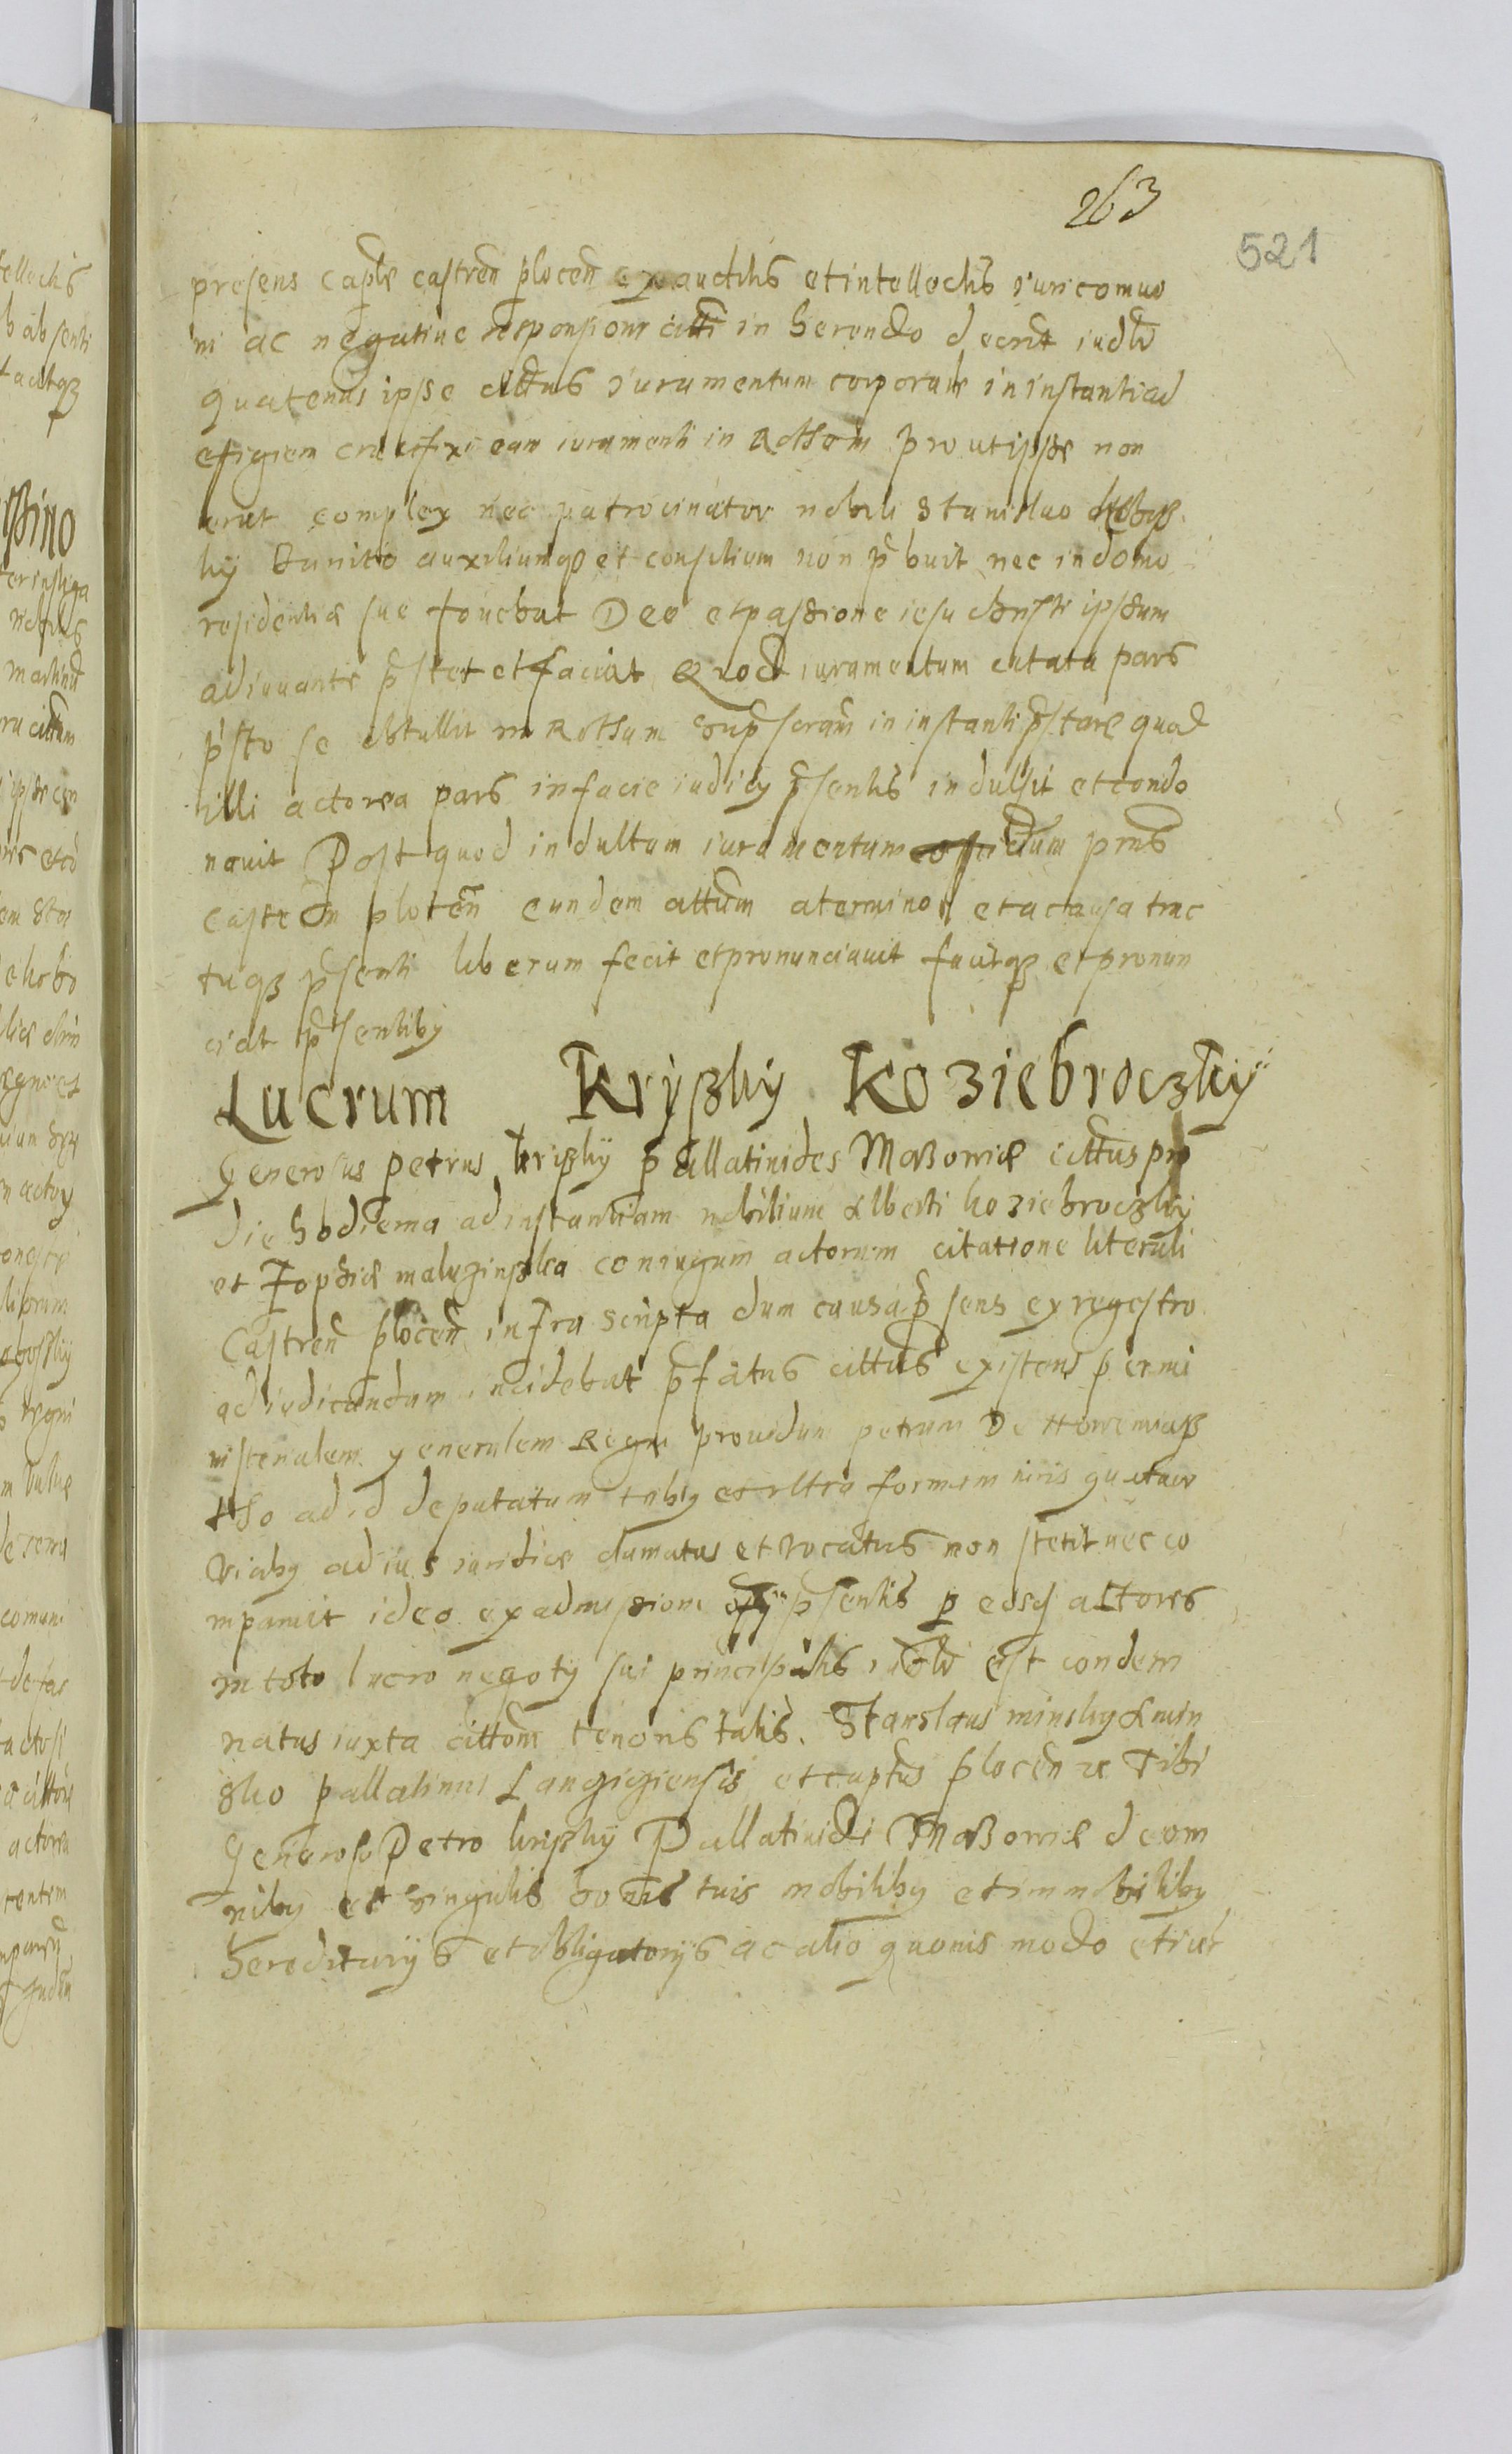 263
521
presens Capte castren plocen exauditis et intellectis iuri comuo
ni ac negatiue responsioni citti in herendo decrit iudtr
quatenus ipse cittus iuramentum corporale in instanti ad
efigiem crucifixi eam iuramenti in Rotham prout ipse non
erat complex nec patrocinator nobili Stanislao
ky Banito auxiliumq et consilium non pbuit nec in domo
residentiæ sue fouebat Deo et passione iesu christi ipsum
adiuuante pstet et faciat Quod iuramentum citata pars
psto se obtullit in Rotham supscram in instanti pstare quod
illi actorea pars in facie iudicy psentis indulsit et condo
nauit Post quod indultum iuramentum prns
castren plocen eundem cittum a termino et a causa trac
tuqz psenti liberum fecit et pronunciauit facitqz et pronun
ciat psentiby
Lucrum Kryßky Koziebroczky
Generosus petrus krißky pallatinides Maßowiæ cittus pro
die hodierna ad instantiam nobilium Alberti koziebroczky
et Zophiæ maluzinska coniugum actorum citatione literali
Castren plocen infra scripta dum causa psens ex regestro
ad iudicandum incidebat pfatus cittus existens p mi
nisterialem generalem Regni prouidum petrum De
ad id deputatum trby et vltra formam iuris quatuor
viciby ad ius iuridice clamatus et vocatus non stetit nec co
mparuit ideo ex admissione psentis p eosq actores
in toto lucro negoty sui principalis iudtr est condem
natus iuxta cittom tenoris talis. Stanslaus minsky de min
sko pallatinus Langigiensis et captus plocen re Tibi
Generoso Petro krißky Pallatinidi Maßowiæ de om
niby et singulis bonis tuis mobiliby et immobiliby
hereditarys et obligatorys ac alio quouis modo et iur